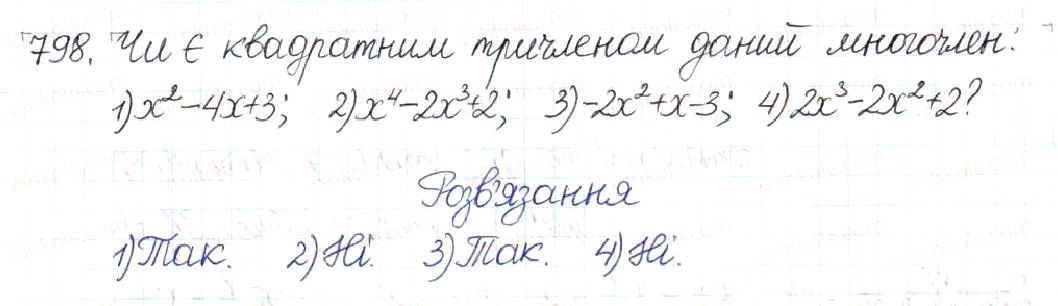 798. Чи є квадратним тричленом даний многочлен:
1) x²-4x+3; 2) x⁴-2x³+2; 3) -2x²+x-3; 4) 2x³-2x²+2?
Розв'язання
1) Так. 2) Ні. 3) Так. 4) Ні.